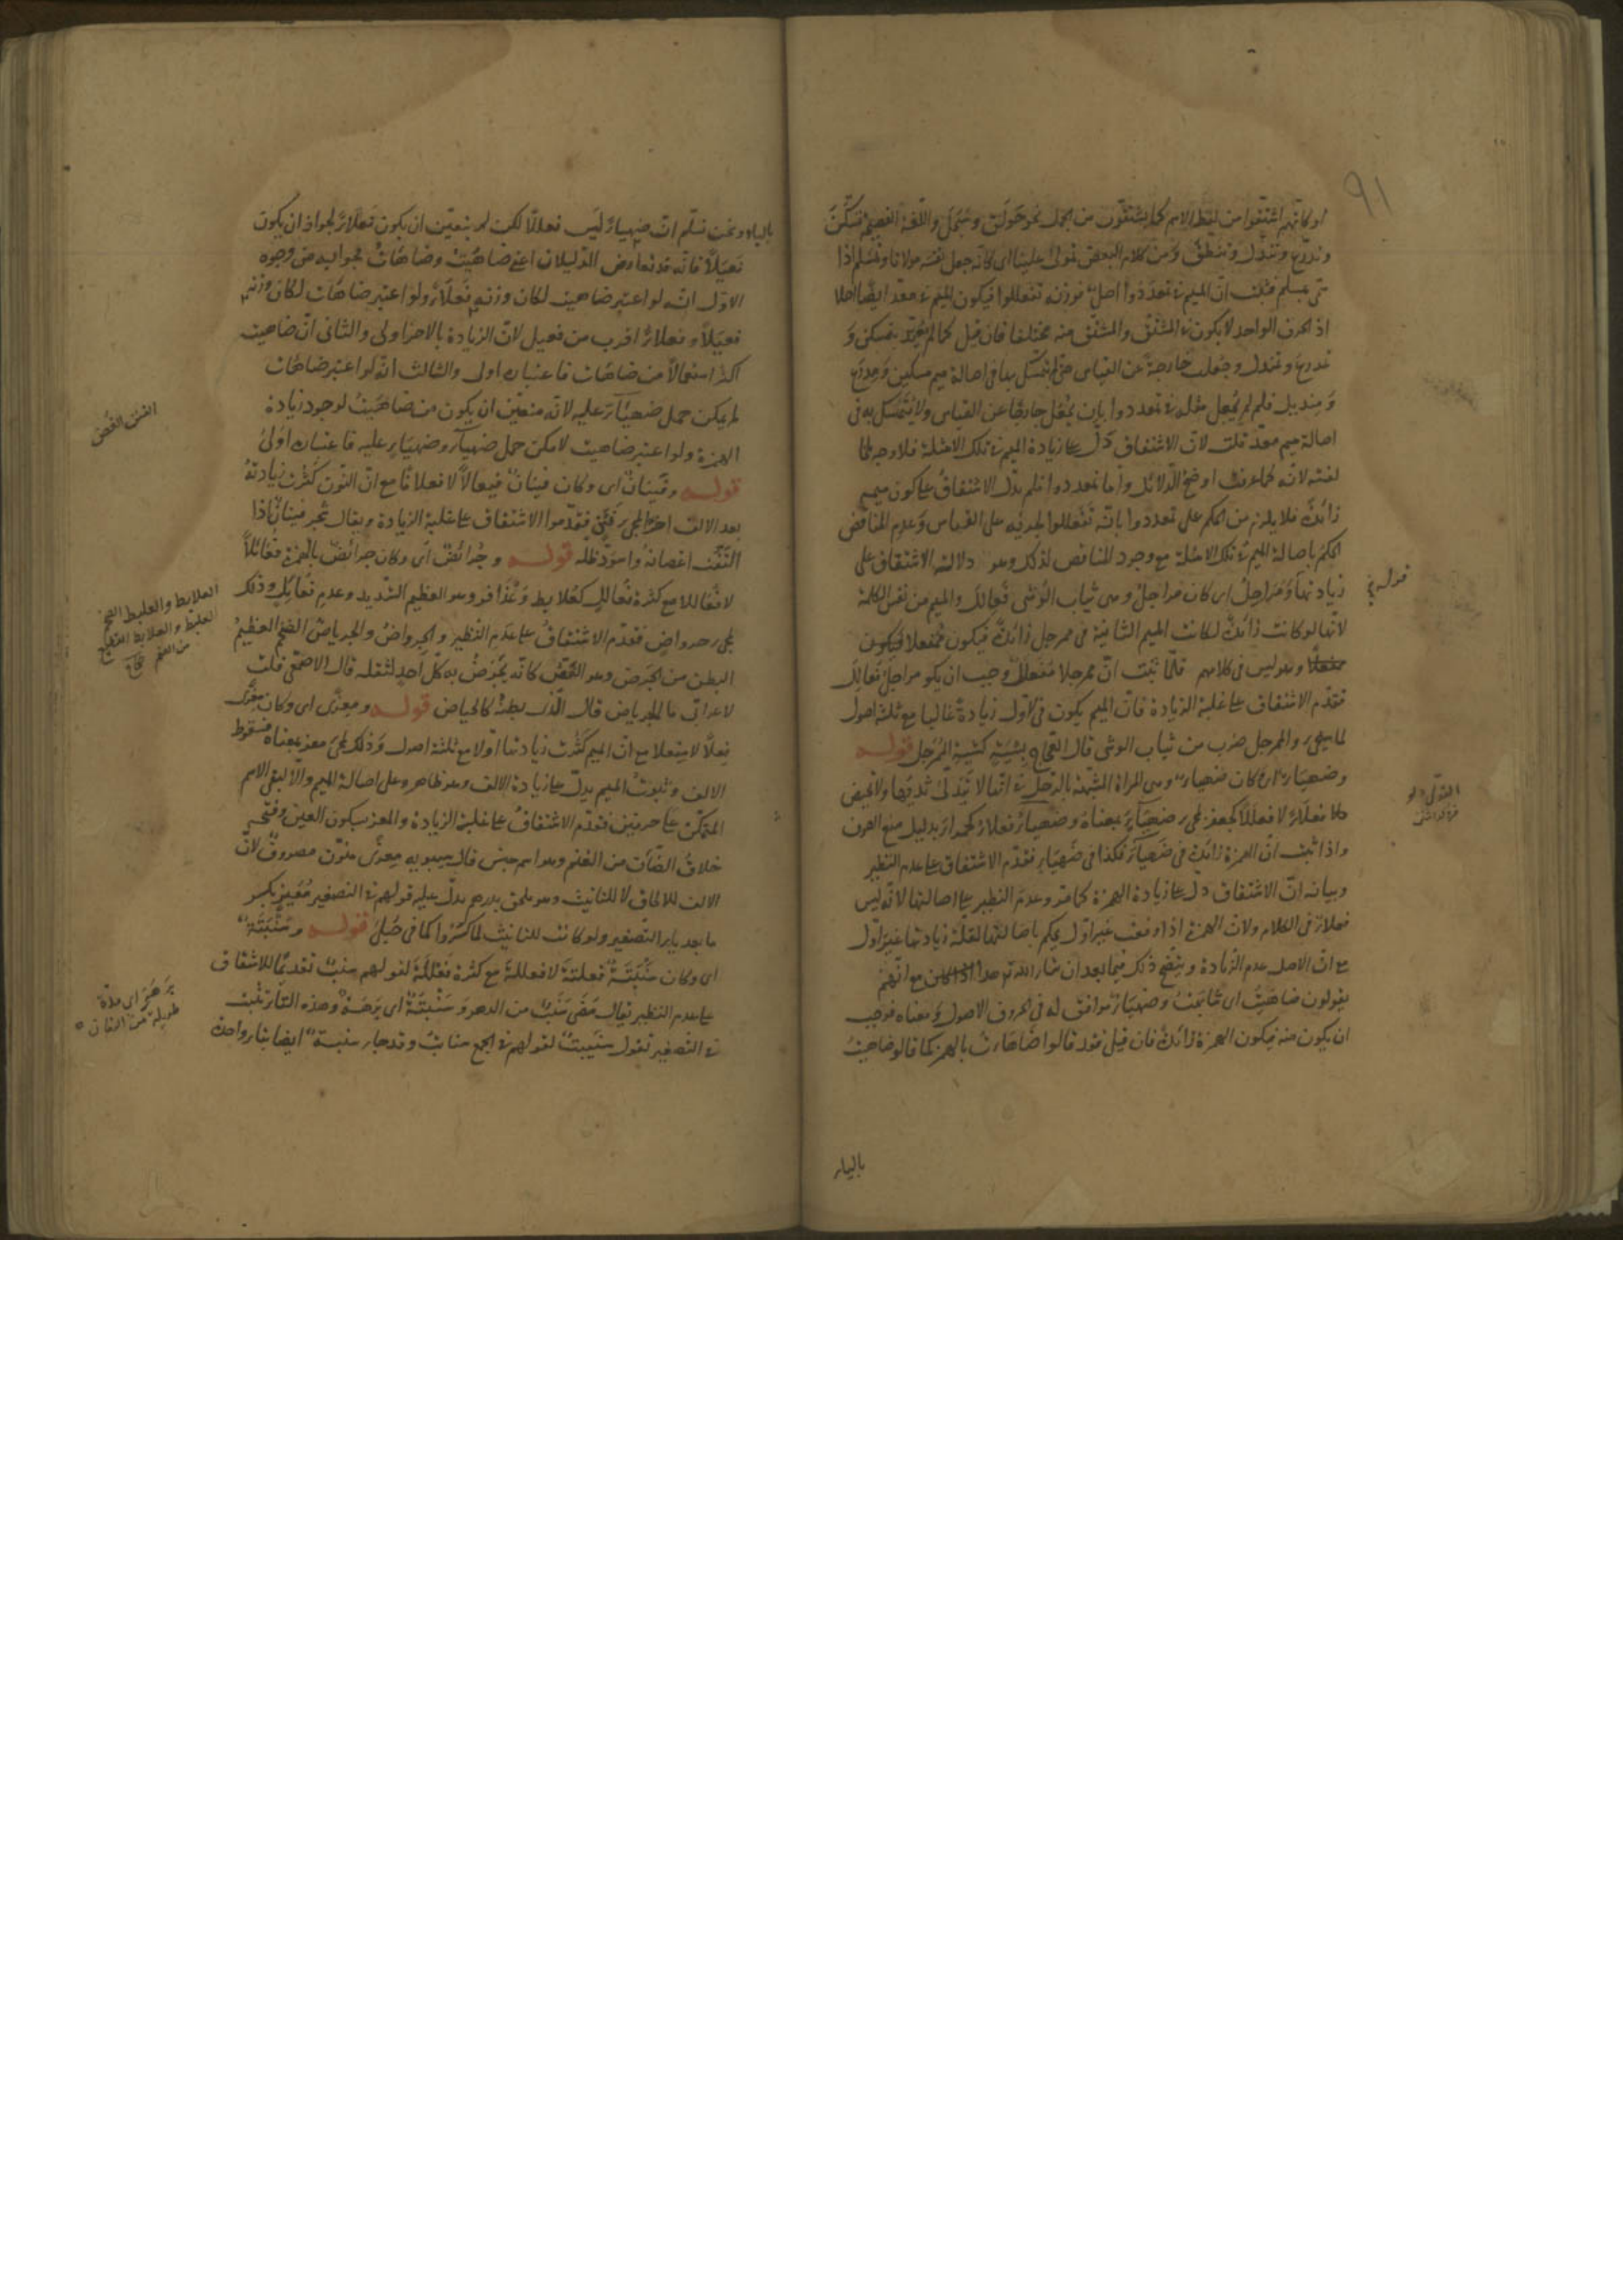 ٩١
او كانّهم اشتقّوا من لفظ الاسم كما يشتقّون من الجمل نحو حَوْلَقَ وسَبْحَلَ واللّغة الفصيحة تسكّن
وتدرّع وتندّل وتنطّق ومن كلام البعض تمولى علينا اى كانّه جعل نفسه مولانا وتمسلم اذا
تسمّى بمسلم فثبت انّ الميم فى تمعددوا اصل فوزنه تفعللوا فيكون الميم فى معدّ ايضا اصلا
اذ الحرف الواحد لا يكون فى المشتقّ والمشتقّ منه مختلفا فان قيل كما لم يعتدّ بتمسكن و
تمدرع وتمندل وجعلت خارجة عن القياس حتى لم يتمسّك بها فى اصالة ميم مسكين ومدرع
ومنديل فلم لم يجعل مثله فى تمعددوا بان يجعل خارجا عن القياس ولا يتمسّك به فى
اصالة ميم معدّ قلت لانّ الاشتقاق دلّ على زيادة الميم فى تلك الامثلة فلا وجه
لانّه كما عرفت اوضح الدلائل وامّا تمعددوا فلم يدلّ الاشتقاق على كون ميمه
زائدة فلا يلزم من الحكم على تمعددوا بانّه تفعللوا لجريه على القياس وعدم المناقض
الحكم باصالة الميم فى تلك الامثلة مع وجود المناقض لذلك وهو دلالة الاشتقاق على
زيادتها ومَرَاجِلُ اى كان مراجلُ وهى ثياب الوَشى فَعالِلَ والميم من نفس الكلمة
لانّها لو كانت زائدة لكانت الميم الثانية فى ممرجل زائدة فيكون ممفعلا فيكون
ممفعلا وهو ليس فى كلامهم فلمّا ثبت انّ ممرجلا مفعلل وجب ان يكو مراجل فعالل
فقدّم الاشتقاق على غلبة الزيادة فانّ الميم يكون فى الاوّل زيادة غالبا مع ثلثة اصول
لما سيجىء والممرجل ضرب من ثياب الوشى قال العجّاج بِشِيَةٍ كشية الممرجل قوله
وضَهْيَاء اى وكان ضهياء وهى المراة المشبّهة بالرجل فى انّها لا يتدلّى ثديها ولا تحيض
فعلأ لا فعللا كجعفر لمجىء ضهياء بمعناه وضهياء فعلاء كحمراء بدليل منع الصرف
واذا ثبت انّ الهمزة زائدة فى ضهياء فكذا فى ضهيأ فقدّم الاشتقاق على عدم النظير
وبيانه انّ الاشتقاق دلّ على زيادة الهمزة كما مرّ وعدم النظير على اصالتها لانّه ليس
فعلأ فى الكلام ولانّ الهمزة اذا وقعت غير اوّل يحكم باصالتها لقلّة زيادتها غير اوّل
مع انّ الاصل عدم الزيادة ويتّضح ذلك فيما بعد ان شاء الله تع هذا مع انّهم
يقولون ضاهَيْتُ اى شابهت وضهيأ موافق له فى الحروف الاصول ومعناه فوجب
ان يكون منه فيكون الهمزة زائدة فان قيل فقد قالوا ضاهَأت بالهمز كما قالوا ضاهيتُ
بالياء
بالياء ونحن نسلّم انّ ضهيأ ليس فعللا لكن لم يتعيّن ان يكون فعلأ لجواز ان يكون
فعيلا فانّه قد تعارض الدليلان اعنى ضاهيت وضاهأت فجوابه من وجوه
الاوّل انّه لو اعتبر ضاهيت لكان وزنه فعلأ ولو اعتبر ضاهأت لكان وزنه
فعيلا وفعلأ اقرب من فعيل لانّ الزيادة بالاخر اولى والثانى انّ ضاهيت
اكثر استعمالا من ضاهأت فاعتباره اولى والثالث انّه لو اعتبر ضاهأت
لم يمكن حمل ضهياء عليه لانّه متعيّن ان يكون من ضاهيت لوجود زيادة
الهمزة ولو اعتبر ضاهيت لامكن حمل ضهيأ وضهياء عليه فاعتباره اولى
قوله وفَيْنانٌ اى وكان فينان فيعالا لا فعلانا مع انّ النون كثرت زيادته
بعد الالف اخرا لمجىء فَنَنٍ فقدّموا الاشتقاق على غلبة الزيادة ويقال شجر فينان اذا
التفّت اغصانه واسودّ ظلّه قوله وجُرائض اى وكان جرائض بالهمزة فعائلا
لا فعاللا مع كثرة فعالل كعُلابط وعُذافر وهو العظيم الشديد وعدم فعائل وذلك
لمجىء جرواض فقدّم الاشتقاق على عدم النظير والجرواض والجرياض الضخم العظيم
البطن من الجرض وهو الغَصَص كانّه يجرض به كلّ احد لثقله قال الاصمعى قلت
لاعرابى ما الجرياض قال الّذى بطنه كالحياض قوله ومِعزى اى وكان معزى
فعلًا لا مفعلا مع انّ الميم كثرت زيادتها اوّلا مع ثلثة اصول وذلك لمجىء معز بمعناه فسقوط
الالف وثبوت الميم يدلّ على زيادة الالف وهو ظاهر وعلى اصالة الميم والّا لبقى الاسم
المتمكّن على حرفين فقدّم الاشتقاق على غلبة الزيادة والمعز بسكون العين وفتحه
خلاف الضأن من الغنم وهو اسم جنس قال سيبويه معزى منوّن مصروف لانّ
الالف للالحاق لا للتانيث وهو ملحق بدرهم يدلّ عليه قولهم فى التصغير مُعَيْزٍ بكسر
ما بعد ياء التصغير ولو كانت للتانيث لما كسروا كما فى حُبلى قوله وسَنْبَتَة
اى وكان سنبتة فعلتة لا فعللة مع كثرة فعللة لقولهم سنب تقديما للاشتقاق
على عدم النظير يقال مضى سَنْبٌ من الدهر وسنبتة اى برهة وهذه التاء تثبت
فى التصغير تقول سنيبتة لقولهم فى الجمع سنابت وقد جاء سنبة ايضا بتاء واحدة
الغنن الغُصن
العلابط والعلبط الضخم
العلبط والعلابط القطيع
من الغنم صحاح
برهة اى مدّة
طويلة من الزمان